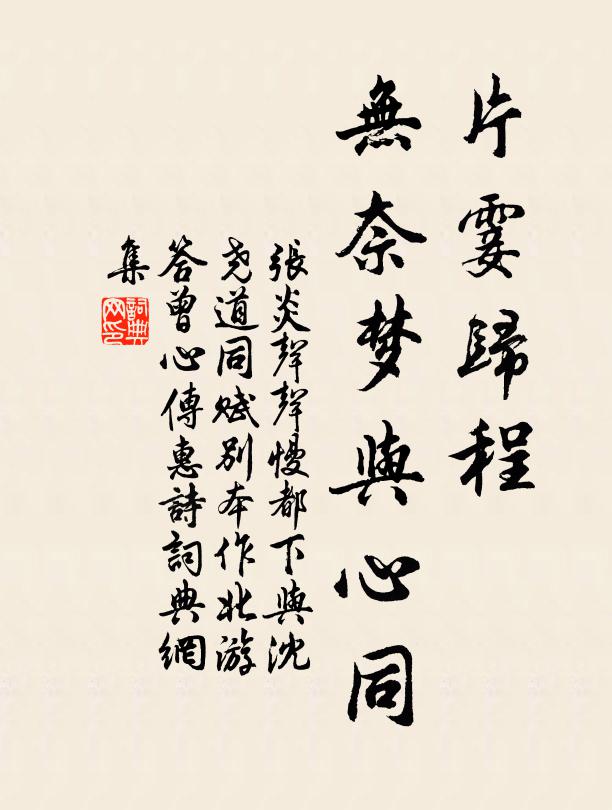 片霎歸程
無奈梦與心同
張炎聲聲慢都下與沈
尭道同赋别本作北游
答曾心傳惠詩詞典網
集
詞典
网印